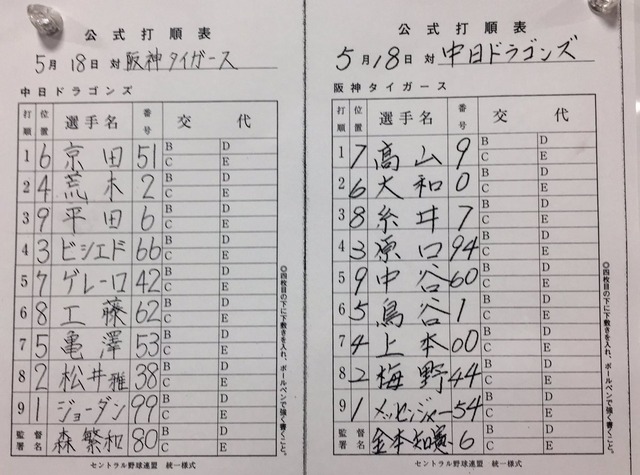 公式打順表
5月18日 対 阪神タイガース
中日ドラゴンズ
打順 位置 選手名 番号 交代
1 6 京田 51 B D C E
2 4 荒木 2 B D C E
3 9 平田 6 B D C E
4 3 ビシエド 66 B D C E
5 7 ゲレーロ 42 B D C E
6 8 工藤 62 B D C E
7 5 亀澤 53 B D C E
8 2 松井雅 38 B D C E
9 1 ジョーダン 99 B D C E
監督署名 森繁和 80 B D C E
◎四枚目の下に下敷きを入れ、ボールペンで強く書くこと。
セントラル野球連盟 統一様式
公式打順表
5月18日 対 中日ドラゴンズ
阪神タイガース
打順 位置 選手名 番号 交代
1 7 髙山 9 B D C E
2 6 大和 0 B D C E
3 8 糸井 7 B D C E
4 3 原口 94 B D C E
5 9 中谷 60 B D C E
6 5 鳥谷 1 B D C E
7 4 上本 00 B D C E
8 2 梅野 44 B D C E
9 1 メッセンジャー 54 B D C E
監督署名 金本知憲 6 B D C E
◎四枚目の下に下敷きを入れ、ボールペンで強く書くこと。
セントラル野球連盟 統一様式